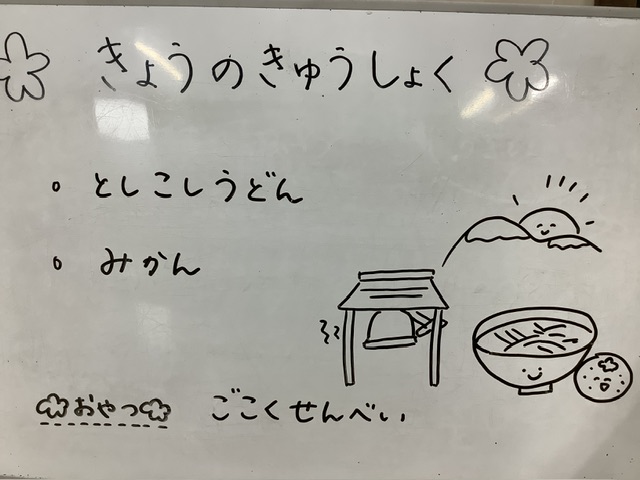 きょうのきゅうしょく
としこしうどん
みかん
おやつ ごこくせんべい